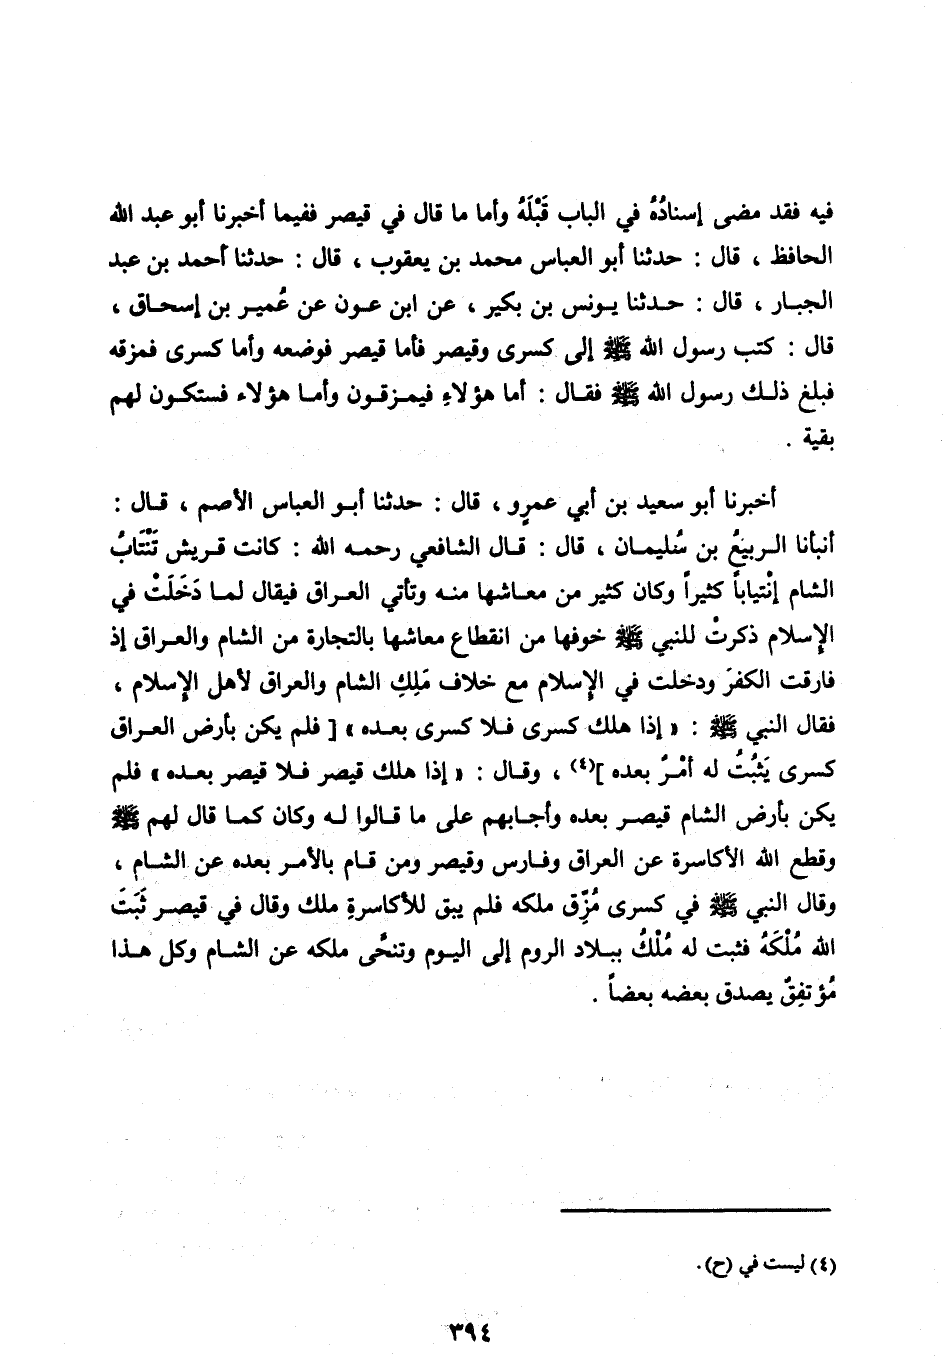 فيه فقد مضى إسنادُهُ في الباب قَبْلَهُ وأما ما قال في قيصر ففيما أخبرنا أبو عبد الله
الحافظ ، قال : حدثنا أبو العباس محمد بن يعقوب ، قال : حدثنا أحمد بن عبد
الجبار ، قال : حدثنا يونس بن بكير ، عن ابن عون عن عُمير بن إسحاق ،
قال : كتب رسول الله ﷺ إلى كسرى وقيصر فأما قيصر فوضعه وأما كسرى فمزقه
فبلغ ذلك رسول الله ﷺ فقال : أما هؤلاءِ فيمزقون وأما هؤلاء فستكون لهم
بقية .
أخبرنا أبو سعيد بن أبي عمرٍو ، قال : حدثنا أبو العباس الأصم ، قال :
أنبأنا الربيعُ بن سُليمان ، قال : قال الشافعي رحمه الله : كانت قريش تَنْتَابُ
الشام إنْتياباً كثيراً وكان كثير من معاشها منه وتأتي العراق فيقال لما دَخَلَتْ في
الإسلام ذكرتْ للنبي ﷺ خوفها من انقطاع معاشها بالتجارة من الشام والعراق إذ
فارقت الكفرَ ودخلت في الإسلام مع خلاف مَلِكِ الشام والعراق لأهل الإسلام ،
فقال النبي ﷺ : « إذا هلك كسرى فلا كسرى بعده » [ فلم يكن بأرض العراق
كسرى يَثبُتُ له أمْرُ بعده ](٤) ، وقال : « إذا هلك قيصر فلا قيصر بعده » فلم
يكن بأرض الشام قيصر بعده وأجابهم على ما قالوا له وكان كما قال لهم ﷺ
وقطع الله الأكاسرة عن العراق وفارس وقيصر ومن قام بالأمر بعده عن الشام ،
وقال النبي ﷺ في كسرى مُزِّق ملكه فلم يبق للأكاسرةِ ملك وقال في قيصر ثَبَتَ
الله مُلْكَهُ فثبت له مُلْكُ ببلاد الروم إلى اليوم وتنحَّى ملكه عن الشام وكل هذا
مُؤتفِقٌ يصدق بعضه بعضاً .
(٤) ليست في (ح).
٣٩٤